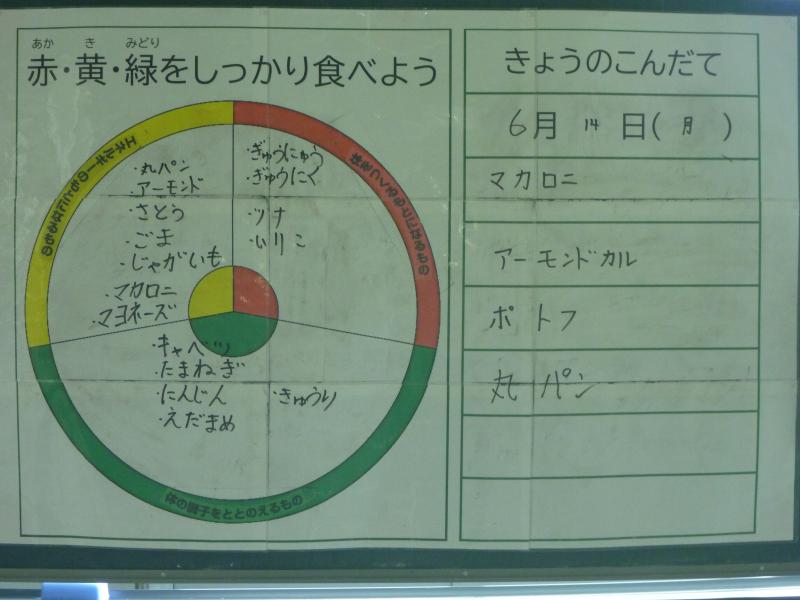 あか き みどり
赤・黄・緑をしっかり食べよう
エネルギーのもとになるもの
体をつくるもとになるもの
・丸パン
・アーモンド
・さとう
・ごま
・じゃがいも
・マカロニ
・マヨネーズ
・ぎゅうにゅう
・ぎゅうにく
・ツナ
・いりこ
・キャベツ
・たまねぎ
・にんじん
・えだまめ
・きゅうり
体の調子をととのえるもの
きょうのこんだて
6月 14 日(月)
マカロニ
アーモンドカル
ポトフ
丸パン